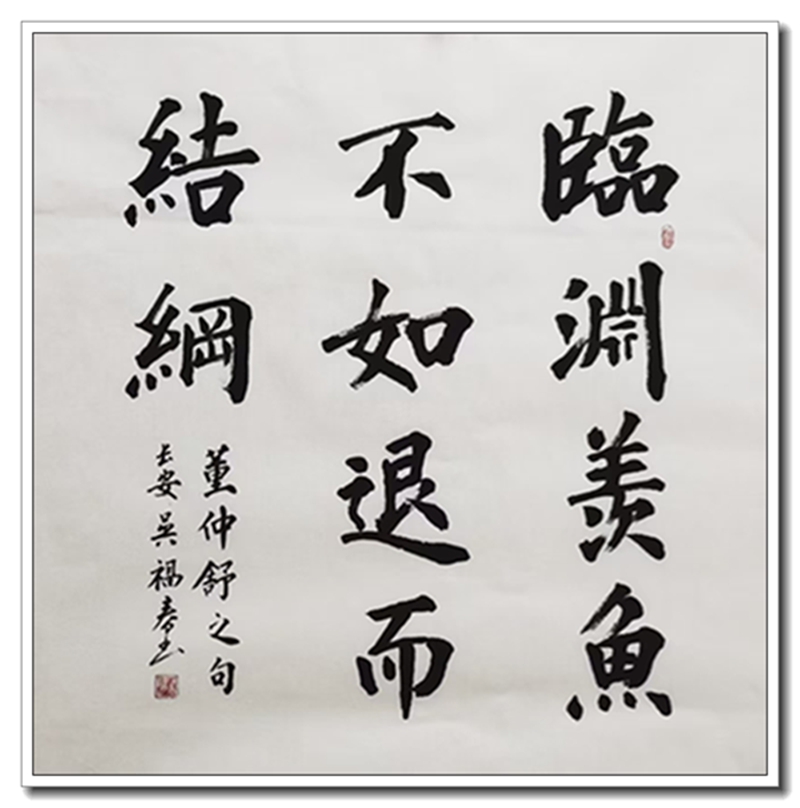 臨淵羨魚
不如退而
結綱
董仲舒之句
長安吳福春书